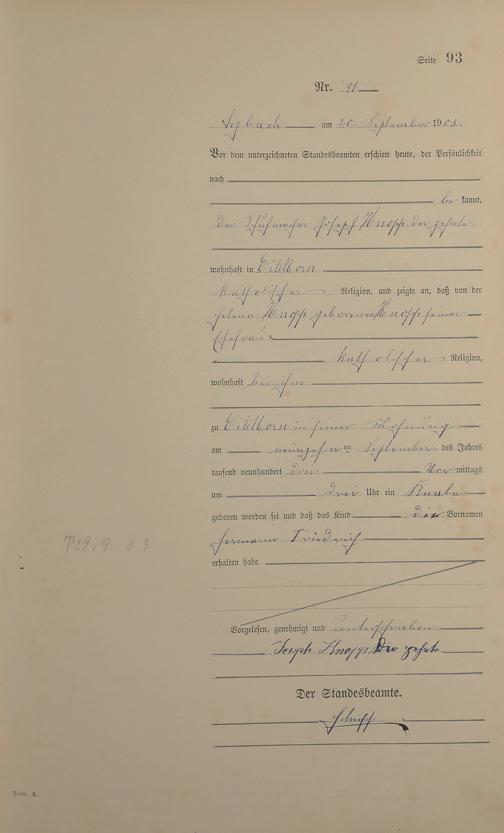 Seite 93
Nr. 91
Arzbach am 20. September 1903.
Vor dem unterzeichneten Standesbeamten erschien heute, der Persönlichkeit
nach
be kannt,
der Schuhmacher Joseph Knopp der zehnte
wohnhaft in Eitelborn
katholischer Religion, und zeigte an, daß von der
Helena Knopp geborenen Knopp seiner
Ehefrau
katholischer Religion,
wohnhaft bei ihm
zu Eitelborn in seiner Wohnung
am neunzehn ten September des Jahres
tausend neunhundert drei Vor mittags
um drei Uhr ein Knabe
geboren worden sei und daß das Kind die Vornamen
Hermann Friedrich
erhalten habe.
T29. 9. 03
Vorgelesen, genehmigt und unterschrieben
Joseph Knopp der zehnte
Der Standesbeamte.
A.